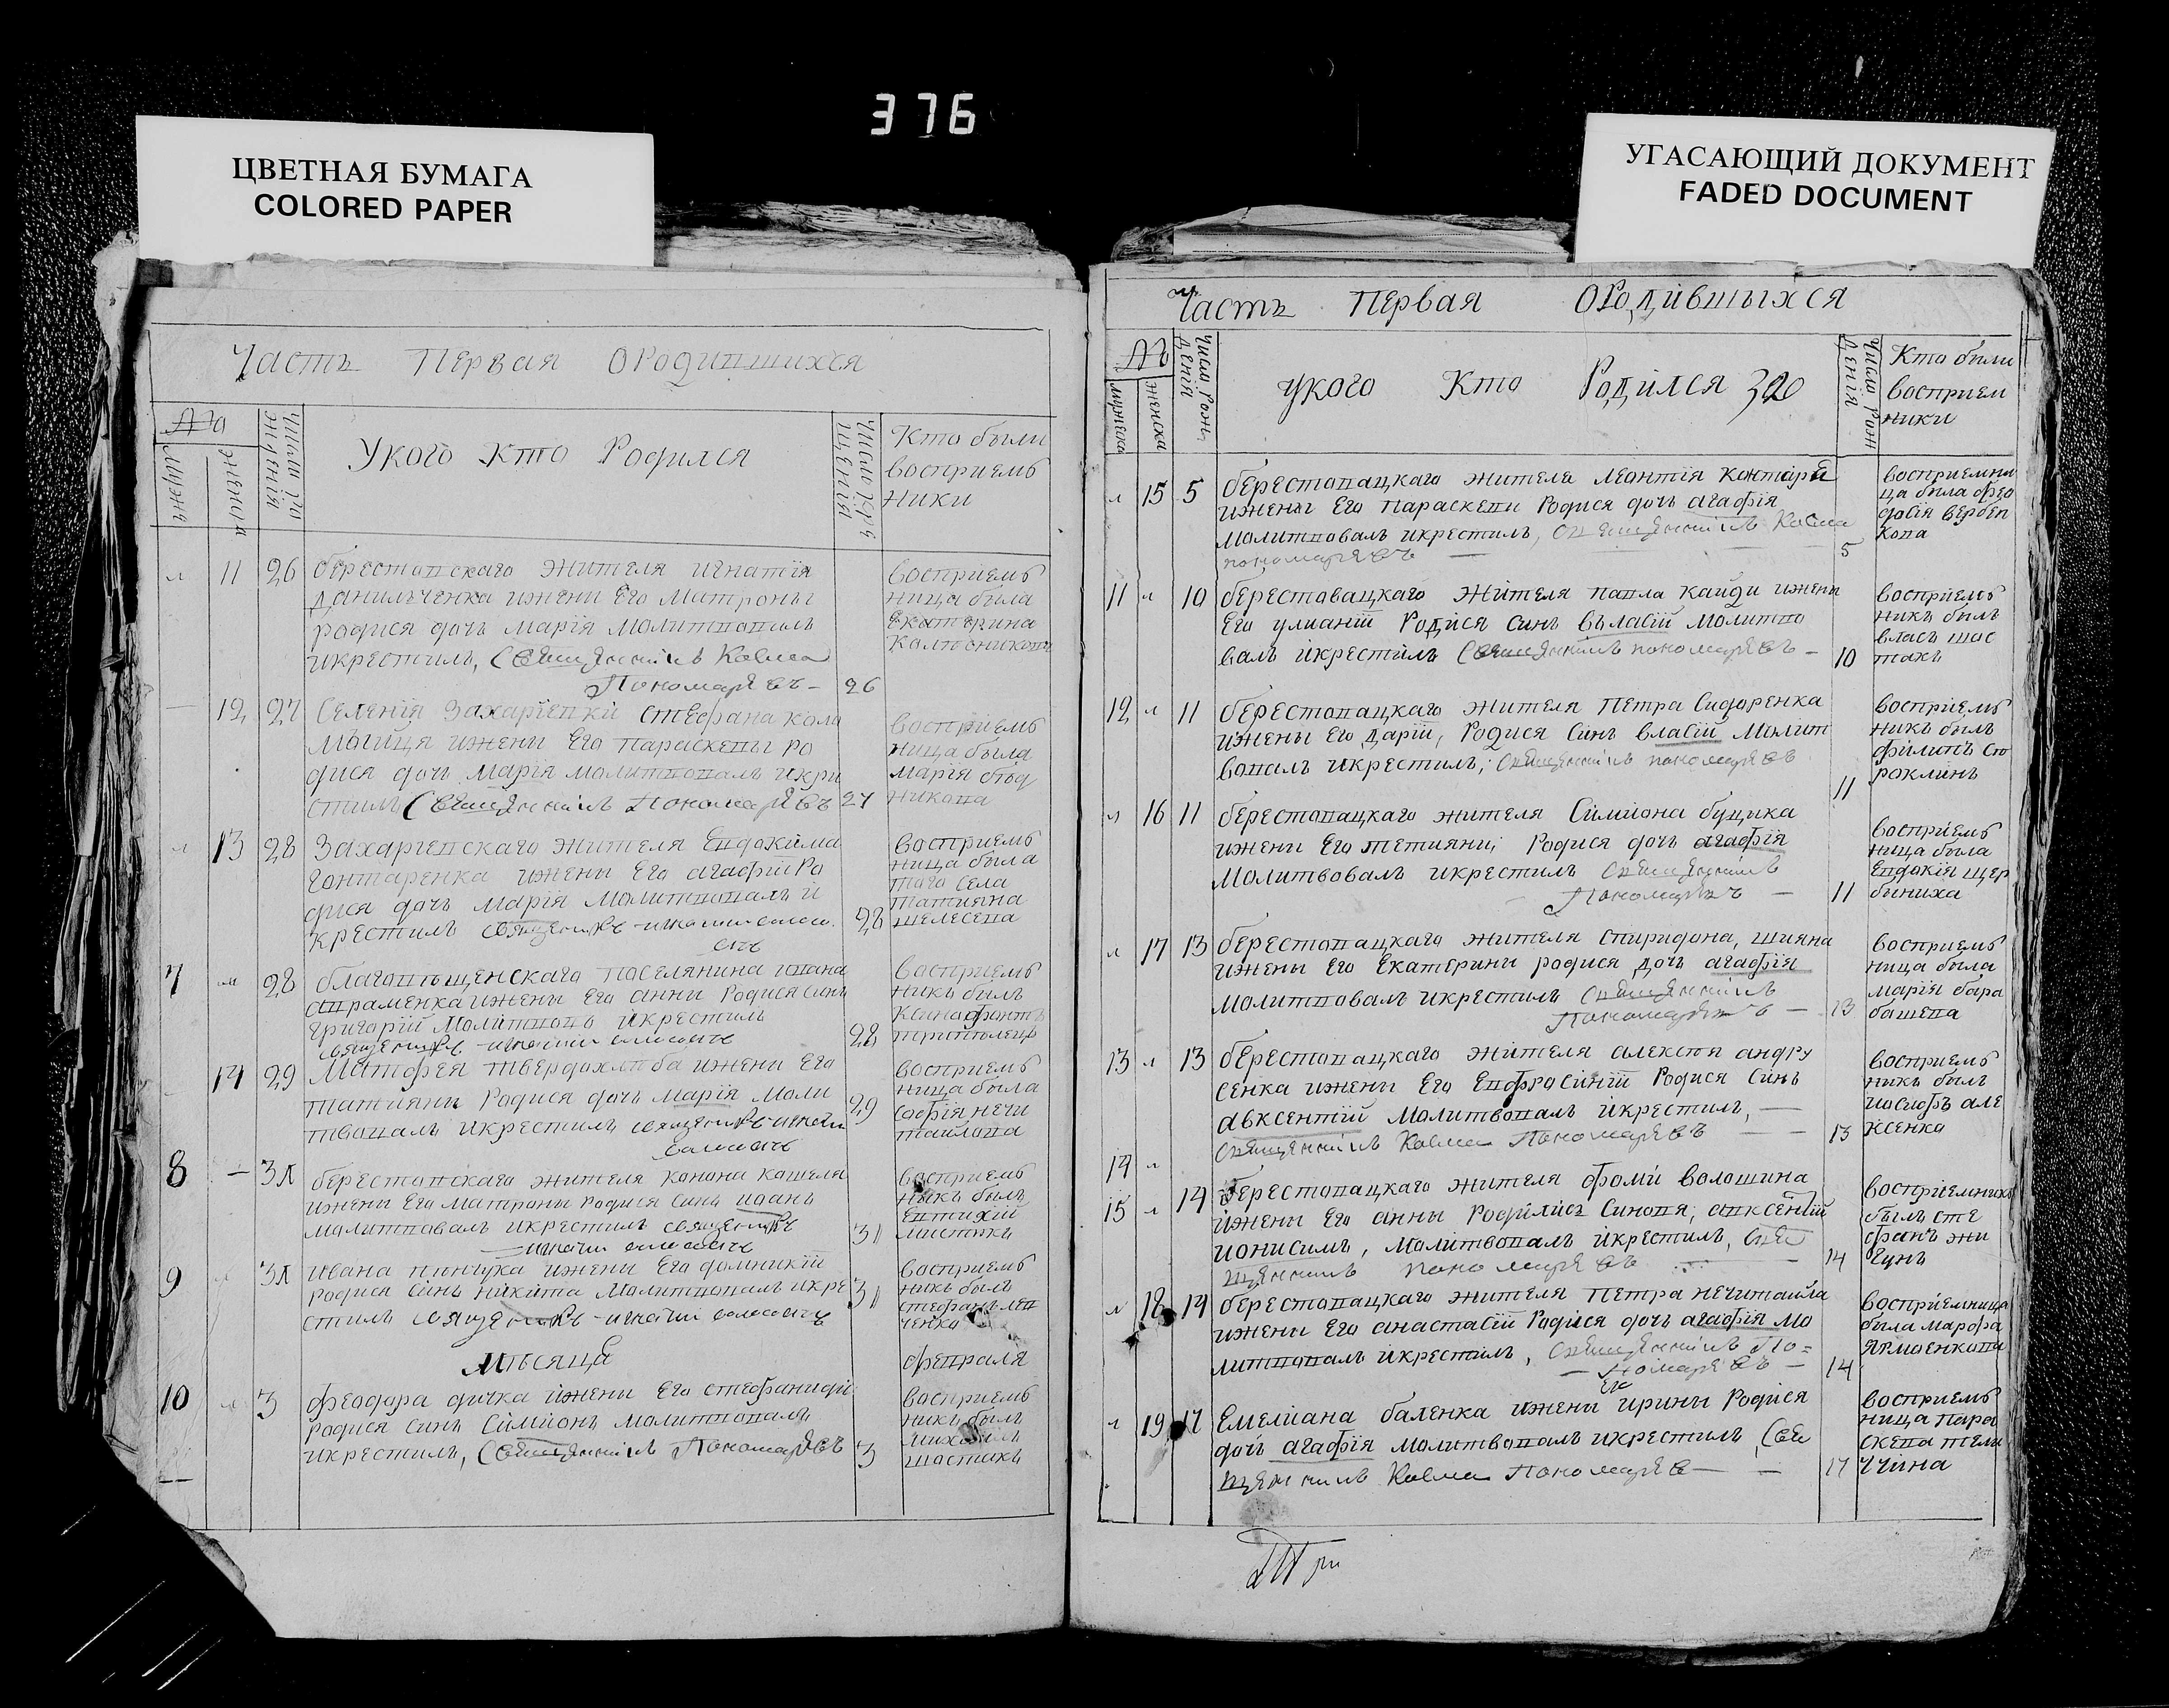 376
ЦВЕТНАЯ БУМАГА
COLORED PAPER
УГАСАЮЩИЙ ДОКУМЕНТ
FADED DOCUMENT
Часть Первая ОРодившихся
Укого Кто Родился
Кто были
восприемъ
ники
11 26 берестовскаго жителя игнатія
данильченка ижени Его Матроны
родися дочь марія Молитвовалъ
икрестилъ, Священникъ Косма
Пономаревъ 26
восприемъ
ница была
Екатерина
12 27 Селенія Захарïевки Стефана кола
ижени Его параскевы ро
дися дочь Марія молитвовалъ икри
стилъ Священникъ Пономаревъ 27
восприемъ
ница была
марія
13 28 Захарïевскаго жителя Евдокима
гонтаренка ижени Его агафïи Ро
дися дочь Марія Молитвовалъ и
крестилъ священникъ 28
восприемъ
ница была
того села
татияна
шелесева
7 28 благовѣщенскаго поселянина ивана
авраменка ижени Его анни Родися синъ
григорïй Молитвовалъ икрестилъ
священникъ 28
восприемъ
никъ билъ
14 29 Матфея твердохлѣба ижени Его
татияни Родися дочь марія Моли
твовалъ икрестилъ священникъ 29
восприемъ
ница была
софïя нечи
тайлова
8 31 берестовскаго жителя конона кошеля
ижени Его матрони родися синъ иоанъ
молитвовалъ икрестилъ священникъ 31
восприемъ
никъ билъ
9 31 ивана пинчука ижени Его домникïи
родися синъ никита Молитвовалъ икре
стилъ священникъ 31
восприемъ
никъ былъ
стефанъ
Мѣсяца февраля
10 3 феодора дичка ижени Его стефаниди
родися синъ Сïмïонъ молитвовалъ
икрестилъ, Священникъ Пономаревъ 3
восприемъ
никъ былъ
михаилъ
шостакъ
Часть Первая ОРодившыхся
укого Кто Родился 320
Кто были
восприем
ники
15 5 берестовацкаго жителя Леонтïя
ижены Его параскеви Родися дочь агафïя
молитвовалъ икрестилъ, Священникъ Косма
пономаревъ 5
восприемни
ца была фео
досïя
11 10 берестовацкаго жителя павла кайди ижени
Его улианïи Родися синъ власïй молитво
валъ икрестилъ Священникъ пономаревъ 10
восприемъ
никъ былъ
власъ шос
такъ
12 11 берестовацкаго жителя Петра Сидоренка
ижены Его дарïи, Родися Синъ власïй Молит
вовалъ икрестилъ; священникъ пономаревъ 11
восприемъ
никъ былъ
филипъ
16 11 берестовацкаго жителя Сïмïона буцика
ижени Его тетияни Родися дочь агафïя
молитвовалъ икрестилъ священникъ
Пономаревъ 11
восприемъ
ница была
Евдокïя щер
биниха
17 13 берестовацкаго жителя спиридона, шияна
ижены Его Екатерини родися дочь агафïя
молитвовалъ икрестилъ священникъ
Пономаревъ 13
восприемъ
ница была
марïя бара
башева
13 13 берестовацкаго жителя алексѣя андру
сенка ижени Его Евфросинïи Родися Синъ
авксентïй Молитвовалъ икрестилъ,
Священникъ Косма Пономаревъ 13
восприемъ
никъ былъ
иосифъ але
ксенко
14
15 14 берестовацкаго жителя фоми волошина
ижени Его анны Родилися Синовя, авксентïй
ионисимъ, молитвовалъ икрестилъ, све
щенникъ пономаревъ 14
восприемникъ
былъ сте
фанъ
18 14 берестовацкаго жителя Петра нечитайла
ижени Его анастасïи Родися дочь агафïя мо
литвовалъ икрестилъ, священникъ По=
номаревъ 14
восприемница
была марфа
19 17 Емелïана баленка ижени Его ирины Родися
дочь агафïя молитвовалъ икрестилъ Све
щенникъ Косма Пономарев 17
восприемъ
ница пара
скева